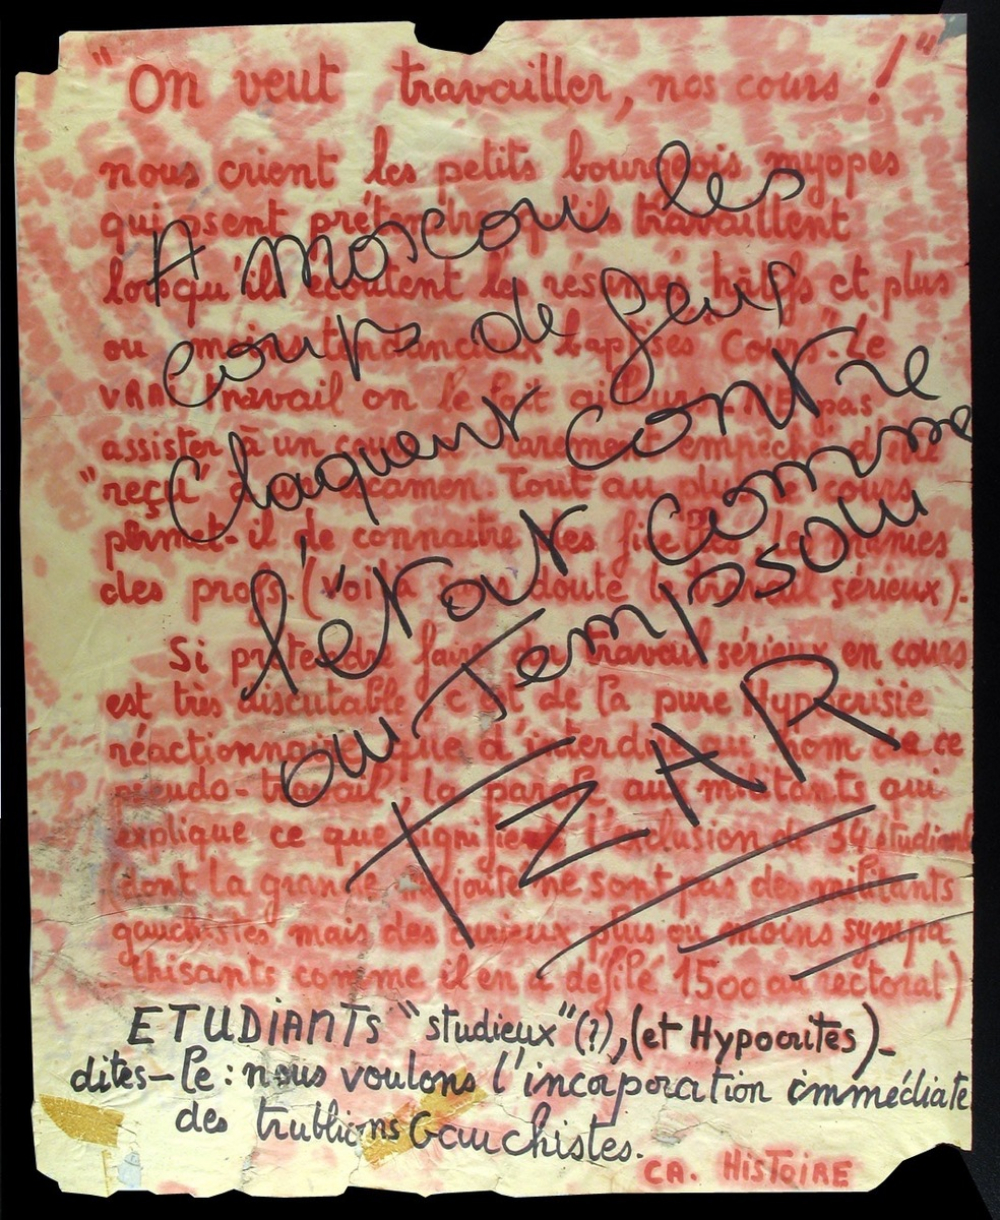 "On veut travailler, nos cours !"
nous crient les petits bourgeois myopes
qui osent prétendre qu'ils travaillent
lorsqu'ils écoutent les résumés hâtifs et plus
ou moins tendancieux baptisés "Cours". Le
VRAI travail on le fait ailleurs. Ne pas
assister à un cours rarement empêché d'être
"reçu" examen. Tout au plus cours
permet-il de connaitre les ficelles, les manies
des profs (voilà sans doute le travail sérieux).
Si prétendre faire du travail sérieux en cours
est très discutable, c'est de la pure Hypocrisie
réactionnaire que d'interdire au nom de ce
pseudo-travail, la parole aux militants qui
explique ce que signifient l'exclusion de 34 étudiants
(dont la grande majorité ne sont pas des militants
gauchistes mais des curieux plus ou moins sympa
thisants comme il en a défilé 1500 au rectorat)
A moscou les
coups de feux
claquent contre
l'état comme
au Temps ou
TZAR
ETUDIANTS "studieux" (?), (et Hypocrites) -
dites-le : nous voulons l'incorporation immédiate
des trublions Gauchistes.
CA. HISTOIRE